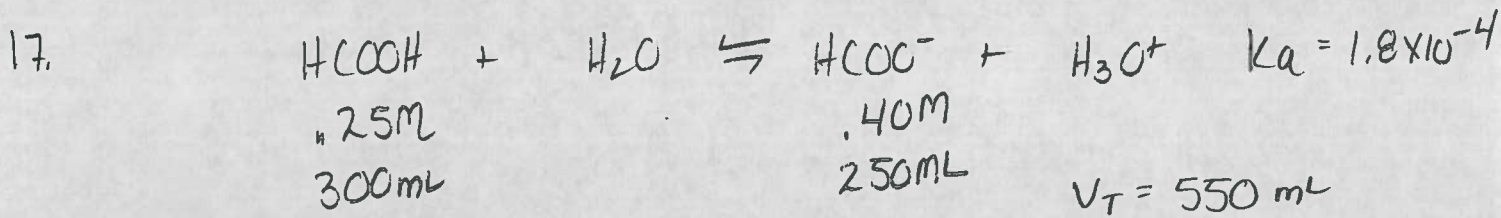 17. HCOOH + H₂O ⇌ HCOO⁻ + H₃O⁺ Ka = 1.8x10⁻⁴
.25M .40M
300mL 250mL V_T = 550 mL